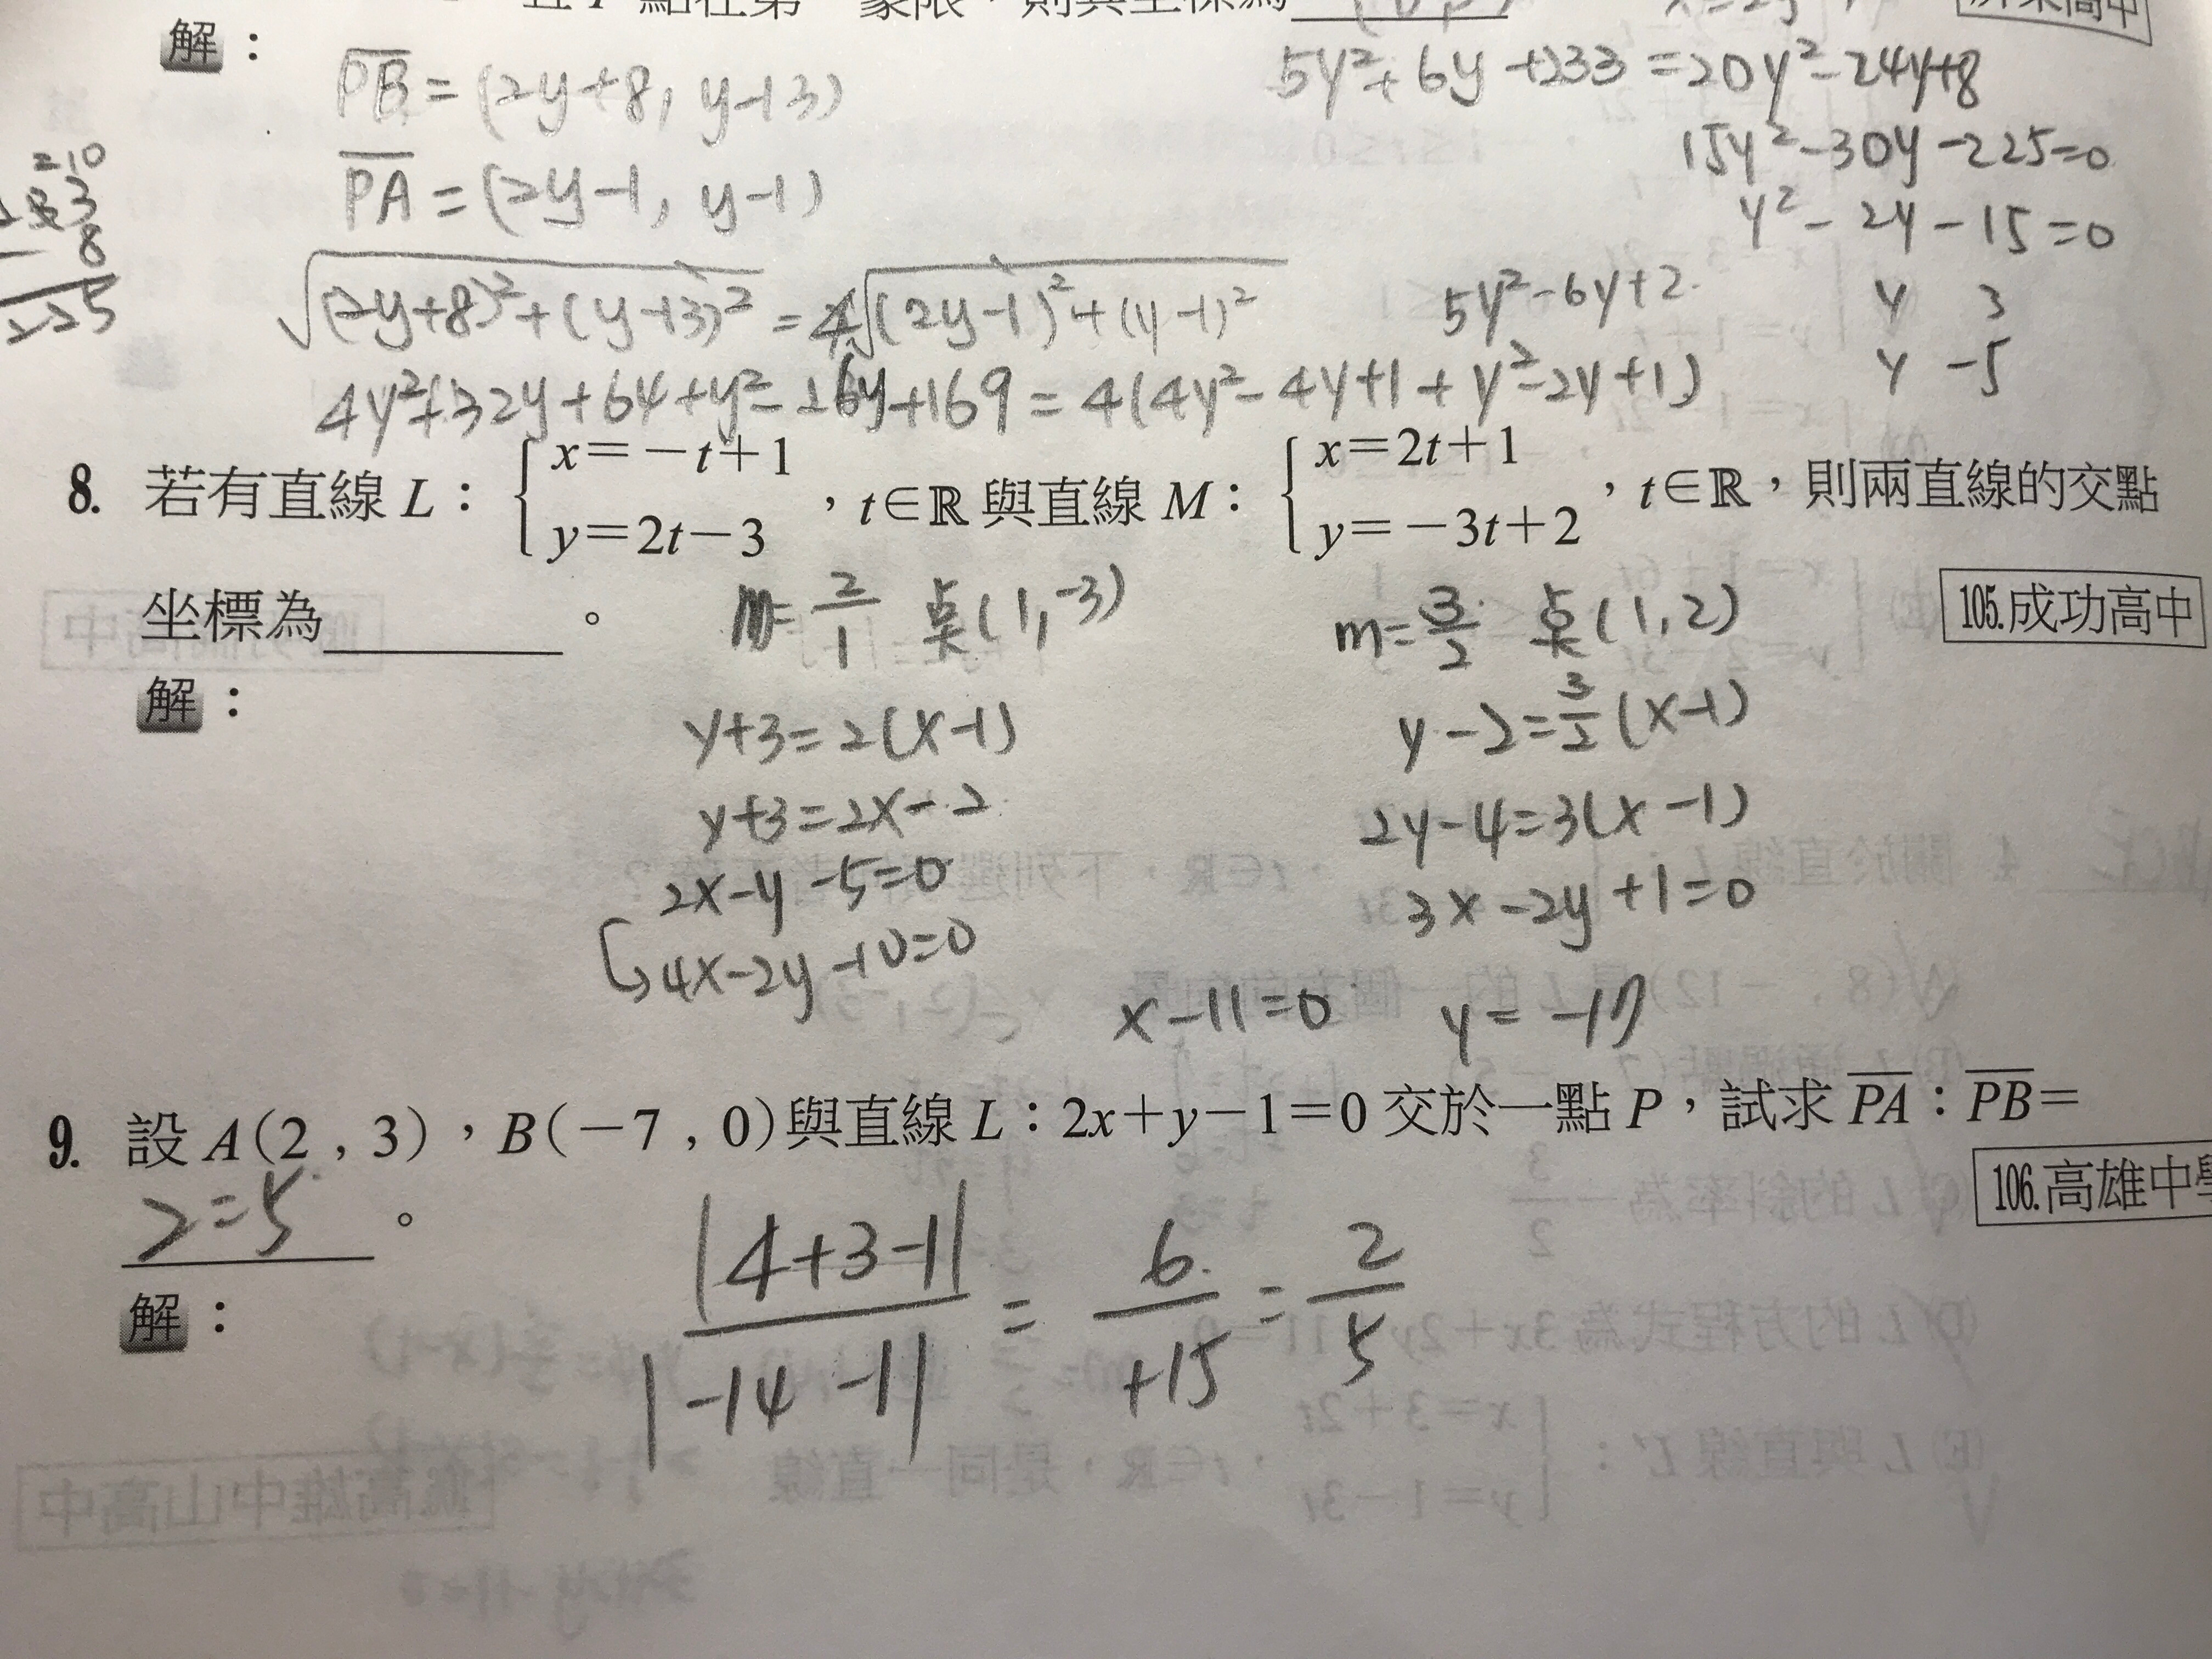 解：
PB = (2y+8, y-13)
PA = (2y-1, y-1)
√(2y+8)²+(y-13)² = 4√(2y-1)²+(y-1)²
4y²+32y+64+y²-26y+169 = 4(4y²-4y+1+y²-2y+1)
5y²+6y+233 = 20y²-24y+8
15y²-30y-225=0
y²-2y-15=0
5y²-6y+2
y 3
y -5
8. 若有直線 L：{x=-t+1, y=2t-3，t∈ℝ 與直線 M：{x=2t+1, y=-3t+2，t∈ℝ，則兩直線的交點
坐標為＿＿＿＿。 105.成功高中
解：
m=2/1 点(1,-3)
y+3=2(x-1)
y+3=2x-2
2x-y-5=0
4x-2y-10=0
m=3/2 点(1,2)
y-2=3/2(x-1)
2y-4=3(x-1)
3x-2y+1=0
x-11=0 y=-17
9. 設 A(2 , 3)，B(-7 , 0)與直線 L：2x+y-1=0 交於一點 P，試求 PA：PB=
2=5。 106.高雄中
解：
|4+3-1|/|-14-1| = 6/+15 = 2/5